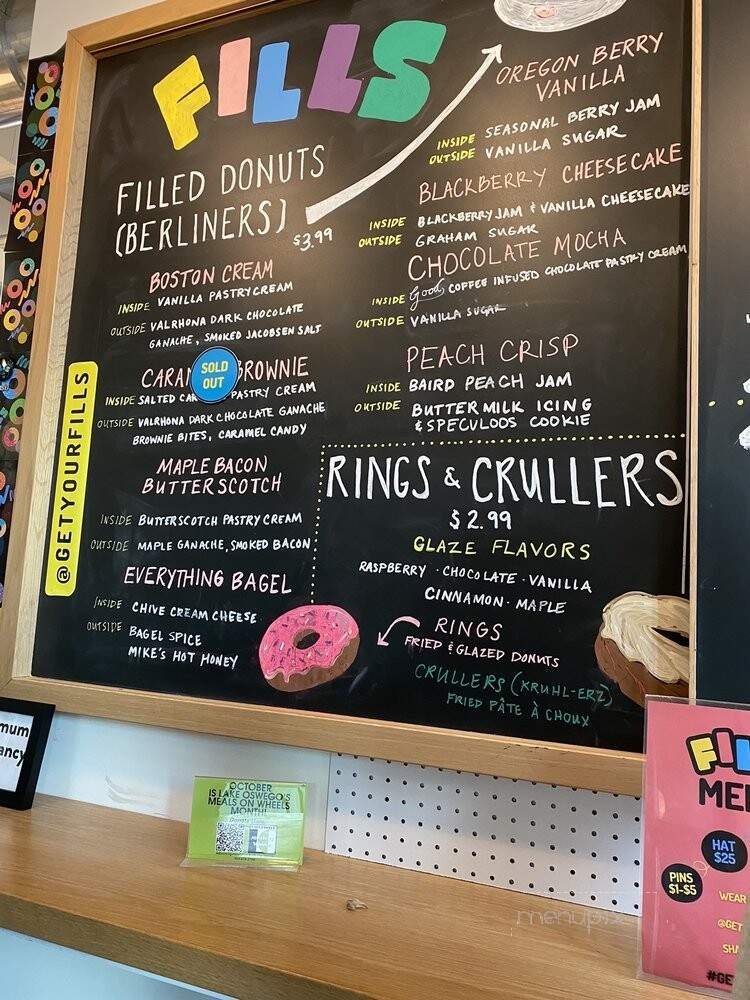 FILLS
FILLED DONUTS
(BERLINERS)
$3.99
BOSTON CREAM
INSIDE VANILLA PASTRY CREAM
OUTSIDE VALRHONA DARK CHOCOLATE
GANACHE, SMOKED JACOBSEN SALT
CARAM BROWNIE
SOLD
OUT
INSIDE SALTED CAR PASTRY CREAM
OUTSIDE VALRHONA DARK CHOCOLATE GANACHE
BROWNIE BITES, CARAMEL CANDY
MAPLE BACON
BUTTERSCOTCH
INSIDE BUTTERSCOTCH PASTRY CREAM
OUTSIDE MAPLE GANACHE, SMOKED BACON
EVERYTHING BAGEL
INSIDE CHIVE CREAM CHEESE
OUTSIDE BAGEL SPICE
MIKE'S HOT HONEY
@GETYOURFILLS
OREGON BERRY
VANILLA
INSIDE SEASONAL BERRY JAM
OUTSIDE VANILLA SUGAR
BLACKBERRY CHEESECAKE
INSIDE BLACKBERRY JAM & VANILLA CHEESECAKE
OUTSIDE GRAHAM SUGAR
CHOCOLATE MOCHA
INSIDE Good COFFEE INFUSED CHOCOLATE PASTRY CREAM
OUTSIDE VANILLA SUGAR
PEACH CRISP
INSIDE BAIRD PEACH JAM
OUTSIDE BUTTERMILK ICING
& SPECULOOS COOKIE
RINGS & CRULLERS
$2.99
GLAZE FLAVORS
RASPBERRY · CHOCOLATE · VANILLA
CINNAMON · MAPLE
RINGS
FRIED & GLAZED DONUTS
CRULLERS (KRUHL-ERZ)
FRIED PÂTE À CHOUX
mum
ancy
OCTOBER
IS LAKE OSWEGO'S
MEALS ON WHEELS
MONTH!
FIL
MER
HAT
$25
PINS
$1-$5
WEAR
@GET
SHA
#GE
menupix